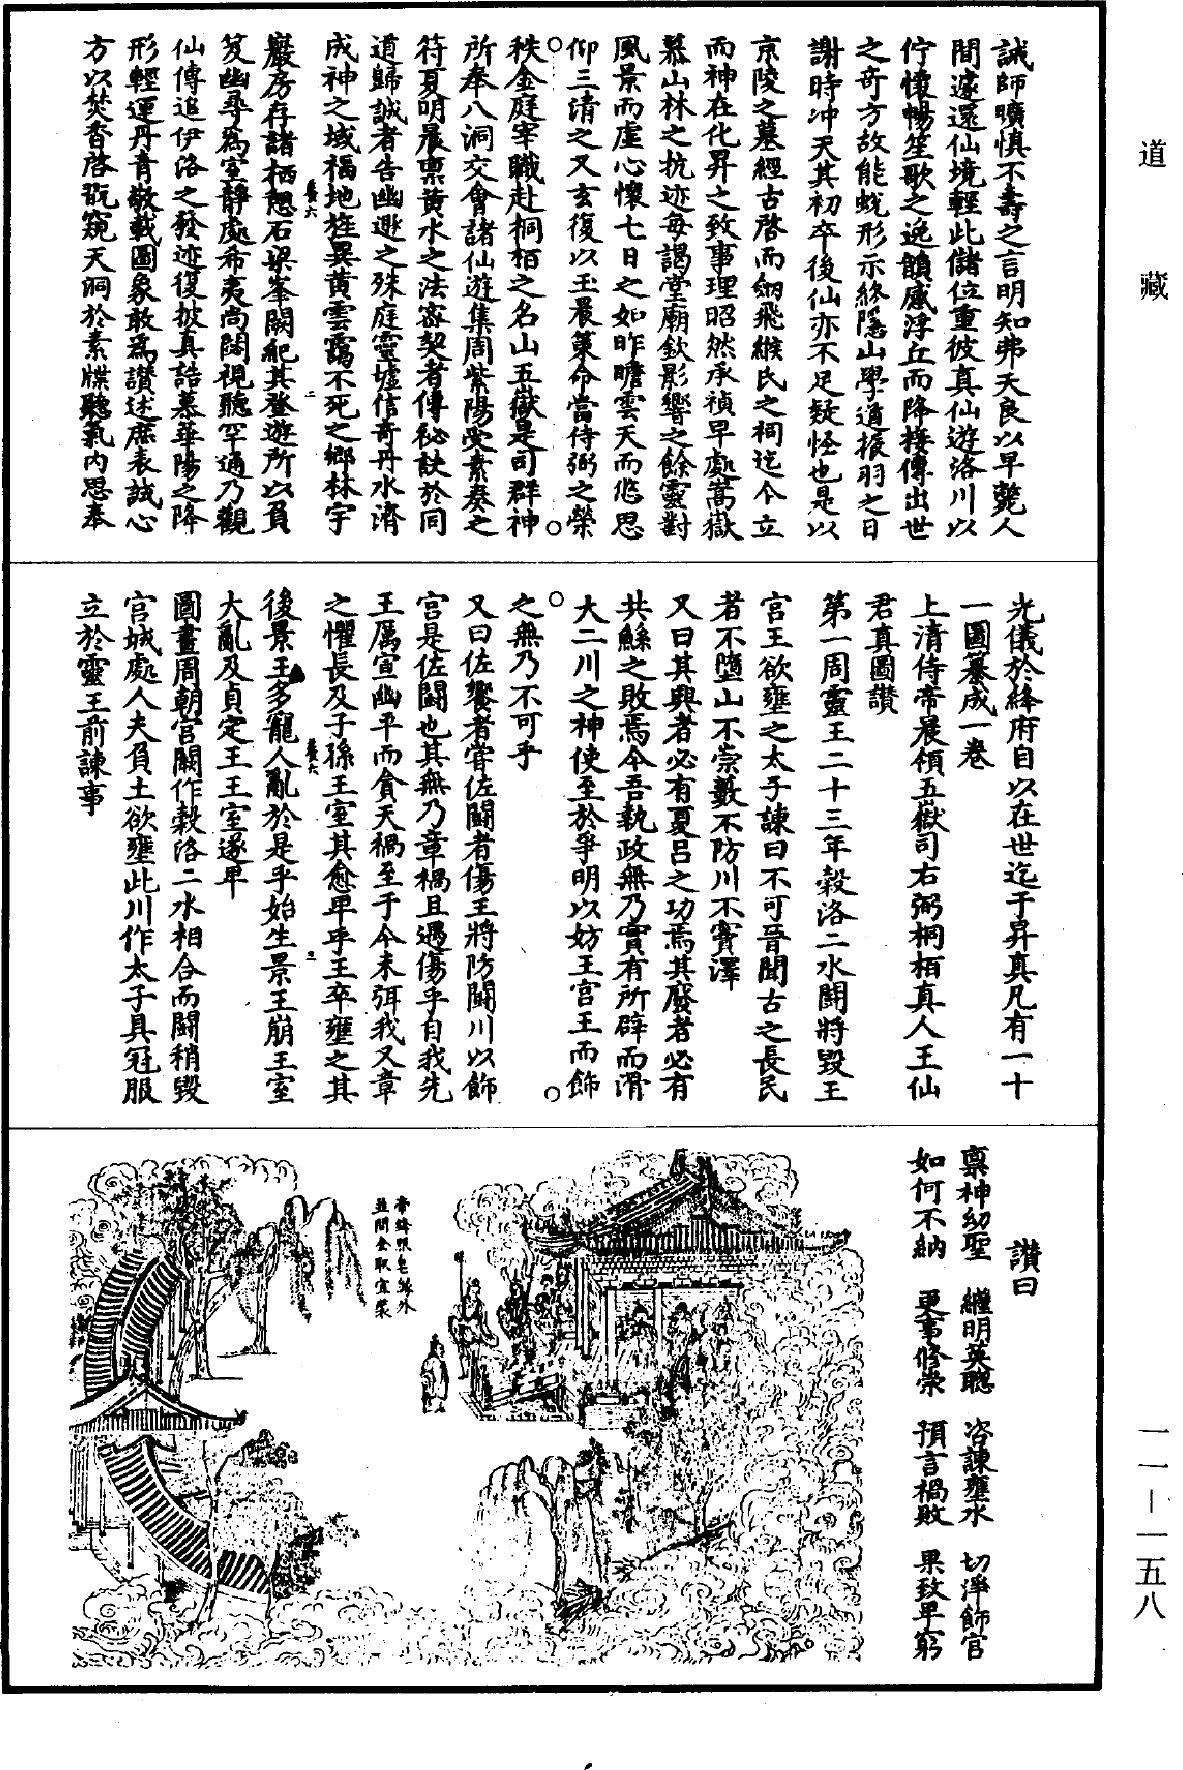 道藏
誡師曠慎不壽之言明知弗天良以早薨人
間遽還仙境輕此儲位重彼真仙遊洛川以
佇懷暢笙歌之逸韻感浮丘而降接傳出世
之奇方故能蛻形示終隱山學道振羽之日
謝時沖天其初卒後仙亦不足疑怪也是以
京陵之墓經古啓而劒飛緱氏之祠迄今立
而神在化昇之致事理昭然承禎早處嵩嶽
慕山林之抗迹每謁堂廟欽影響之餘靈對
風景而虛心懷七日之如昨瞻雲天而悠思
仰三清之又玄復以玉晨策命當侍弼之榮
秩金庭宰職赴桐栢之名山五嶽是司群神
所奉八洞交會諸仙遊集周紫陽受素奏之
符夏明晨稟黃水之法密契者傳祕訣於同
道歸誠者告幽遐之殊庭靈墟信奇丹水濟
成神之域福地旌異黃雲靄不死之鄉林宇
巖房存諸栖憩石梁峯闕紀其登遊所以負
笈幽尋爲室靜處希夷尚闊視聽罕通乃觀
仙傳追伊洛之發迹復披真誥慕華陽之降
形輕運丹青敬載圖象敢爲讚述庶表誠心
方以焚香啓翫窺天洞於素牒聽氣內思奉
光儀於絳府自以在世迄于昇真凡有一十
一圖纂成一卷
上清侍帝晨領五嶽司右弼桐栢真人王仙
君真圖讚
第一周靈王二十三年穀洛二水鬪將毀王
宮王欲壅之太子諫曰不可晉聞古之長民
者不墮山不崇藪不防川不竇澤
又曰其興者必有夏呂之功焉其廢者必有
共鯀之敗焉今吾執政無乃實有所辟而滑
大二川之神使至於爭明以妨王宮王而飾
之無乃不可乎
又曰佐饔者嘗佐鬪者傷王將防鬪川以飾
宮是佐鬪也其無乃章禍且遇傷乎自我先
王厲宣幽平而貪天禍至于今未弭我又章
之懼長及子孫王室其愈卑乎王卒壅之其
後景王多寵人亂於是乎始生景王崩王室
大亂及貞定王王室遂卑
圖畫周朝宮闕作穀洛二水相合而鬪稍毀
宮城處人夫負土欲壅此川作太子具冠服
立於靈王前諫事
讚曰
稟神幼聖　繼明英聰　咨諫壅水　切淨飾宮
如何不納　更事修崇　預言禍敗　果致卑窮
一一—一五八